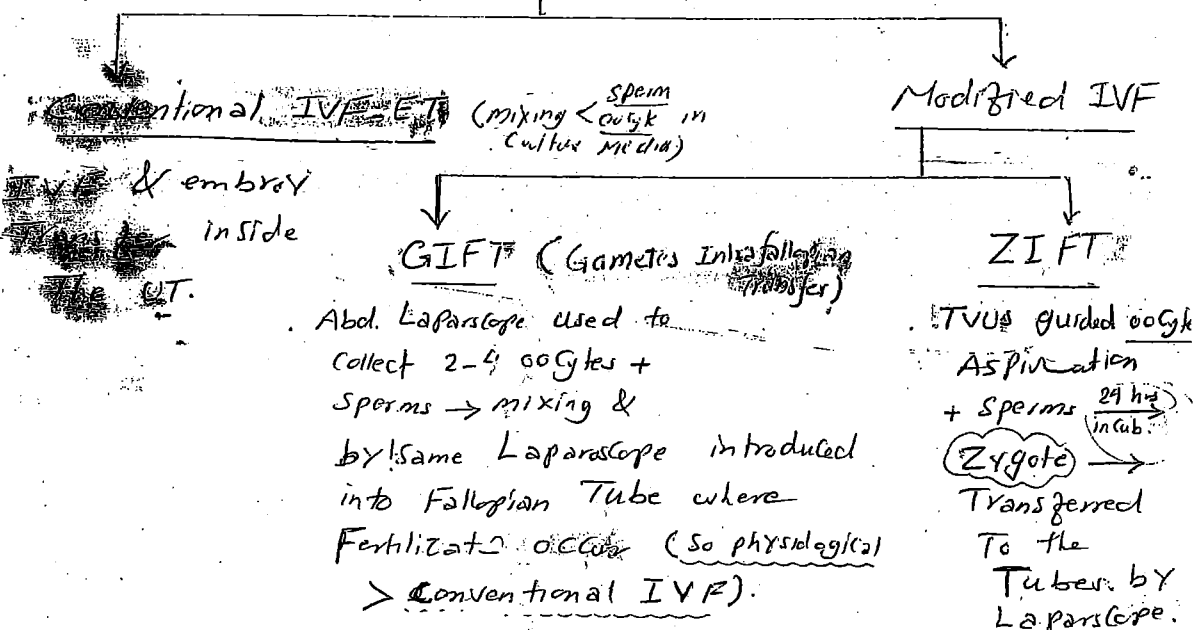 Conventional IVF-ET (mixing < sperm
oocyte in
Culture Media)
Modified IVF
IVF & embroy
Transfer inside
The UT.
GIFT (Gametes Intrafallopian
Transfer)
. Abd. Laparscope used to
Collect 2-4 oocytes +
Sperms → mixing &
by same Laparoscope introduced
into Fallopian Tube where
Fertilizat⁻ occur (so physiological
> Conventional IVF).
ZIFT
. TVUS guided oocyte
Aspiration
+ Sperms 24 hrs
incub.
Zygote →
Transferred
To the
Tubes by
Laparscope.